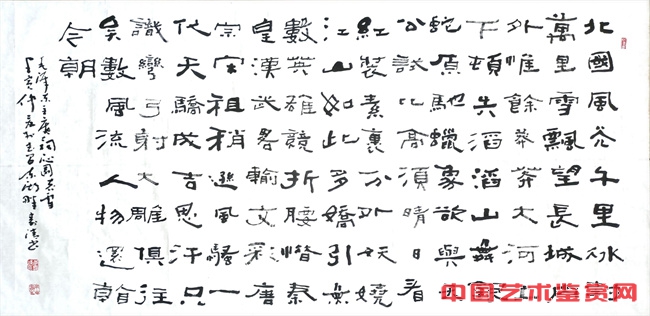 北國風光千里冰封
萬里雪飄望長城内
外惟餘莽莽大河上
下頓失滔滔山舞銀
蛇原馳蠟象欲與天
公試比高須晴日看
紅裝素裹分外妖嬈
江山如此多嬌引無
數英雄競折腰惜秦
皇漢武畧輸文彩唐
宗宋祖稍遜風騷一
代天驕成吉思汗只
識彎弓射大雕俱往
矣數風流人物還看
今朝
毛澤东主席词沁园春雪
丁亥仲夏
中国艺术鉴赏网